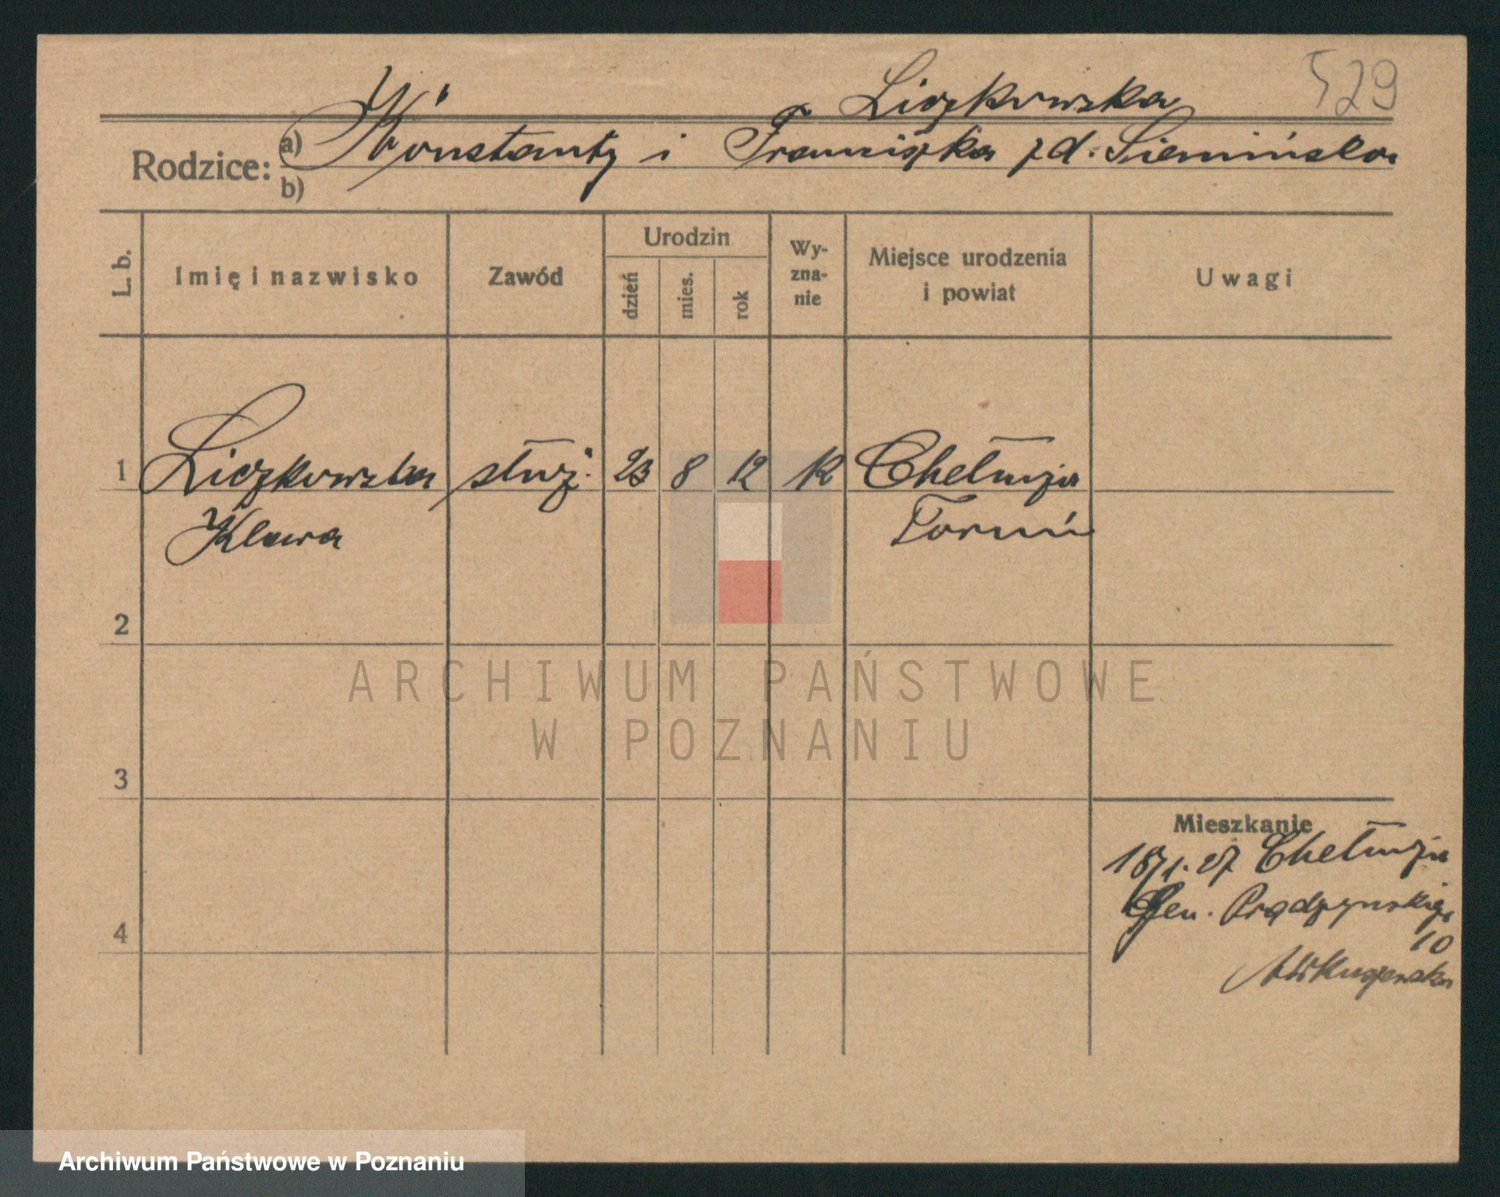 529
Liczkowska
Rodzice: a) Konstanty i Franciszka z d. Siemińska
b)
L. b.
Imię i nazwisko
Zawód
Urodzin
dzień
mies.
rok
Wy-
zna-
nie
Miejsce urodzenia
i powiat
Uwagi
1 Liczkowska służ. 23 8 12 K Chełmża
Klara Toruń
2
3
4
Mieszkanie
Chełmża
Gen. Prądzyńskiego
10
ARCHIWUM PAŃSTWOWE
W POZNANIU
Archiwum Państwowe w Poznaniu